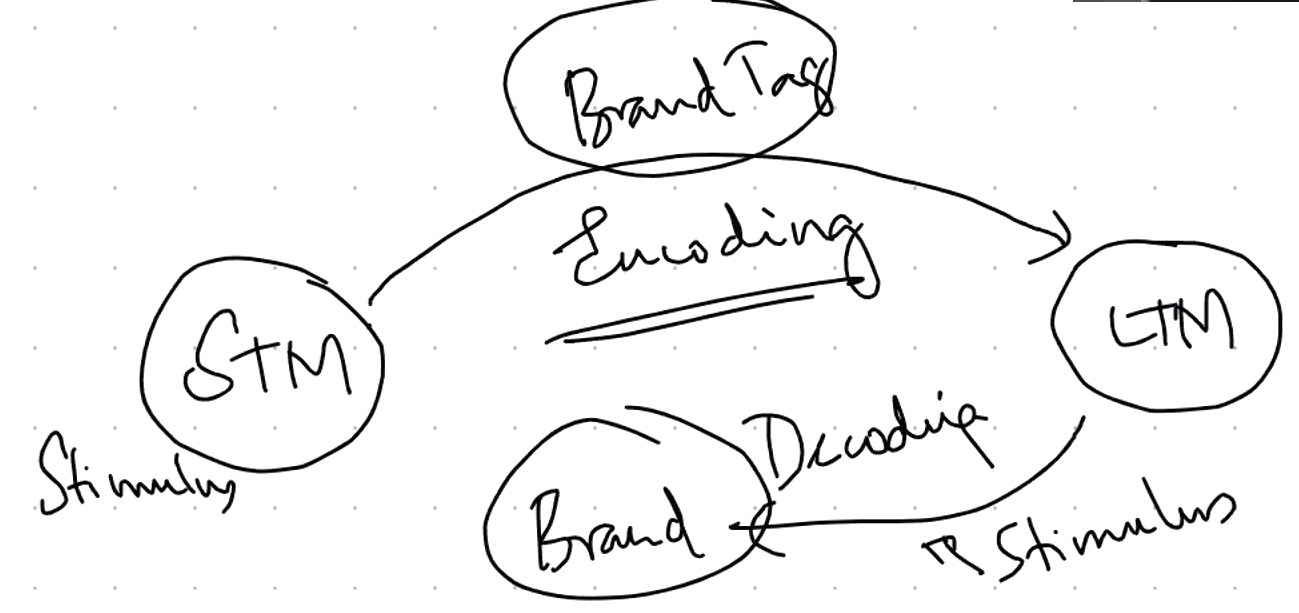 Brand Tag
Encoding
STM
LTM
Stimulus
Decoding
Brand
Stimulus